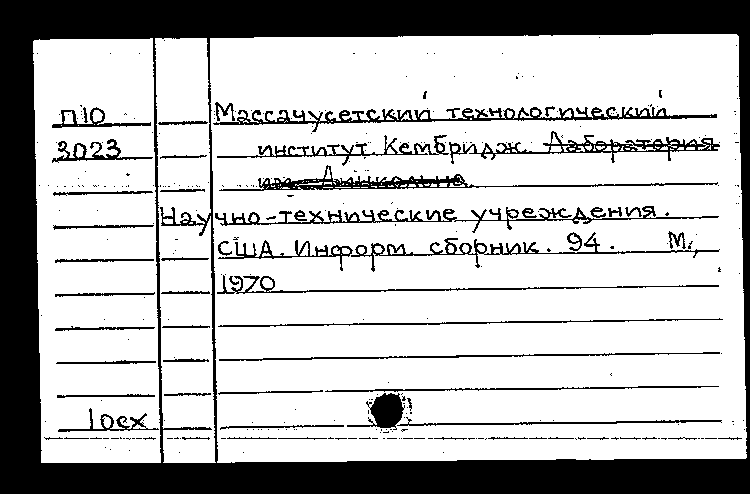 П10 Массачусетский технологический
3023 институт. Кембридж. Лаборатория
им. Линкольна.
Научно-технические учреждения.
США. Информ. сборник. 94. М.,
1970
1 осх